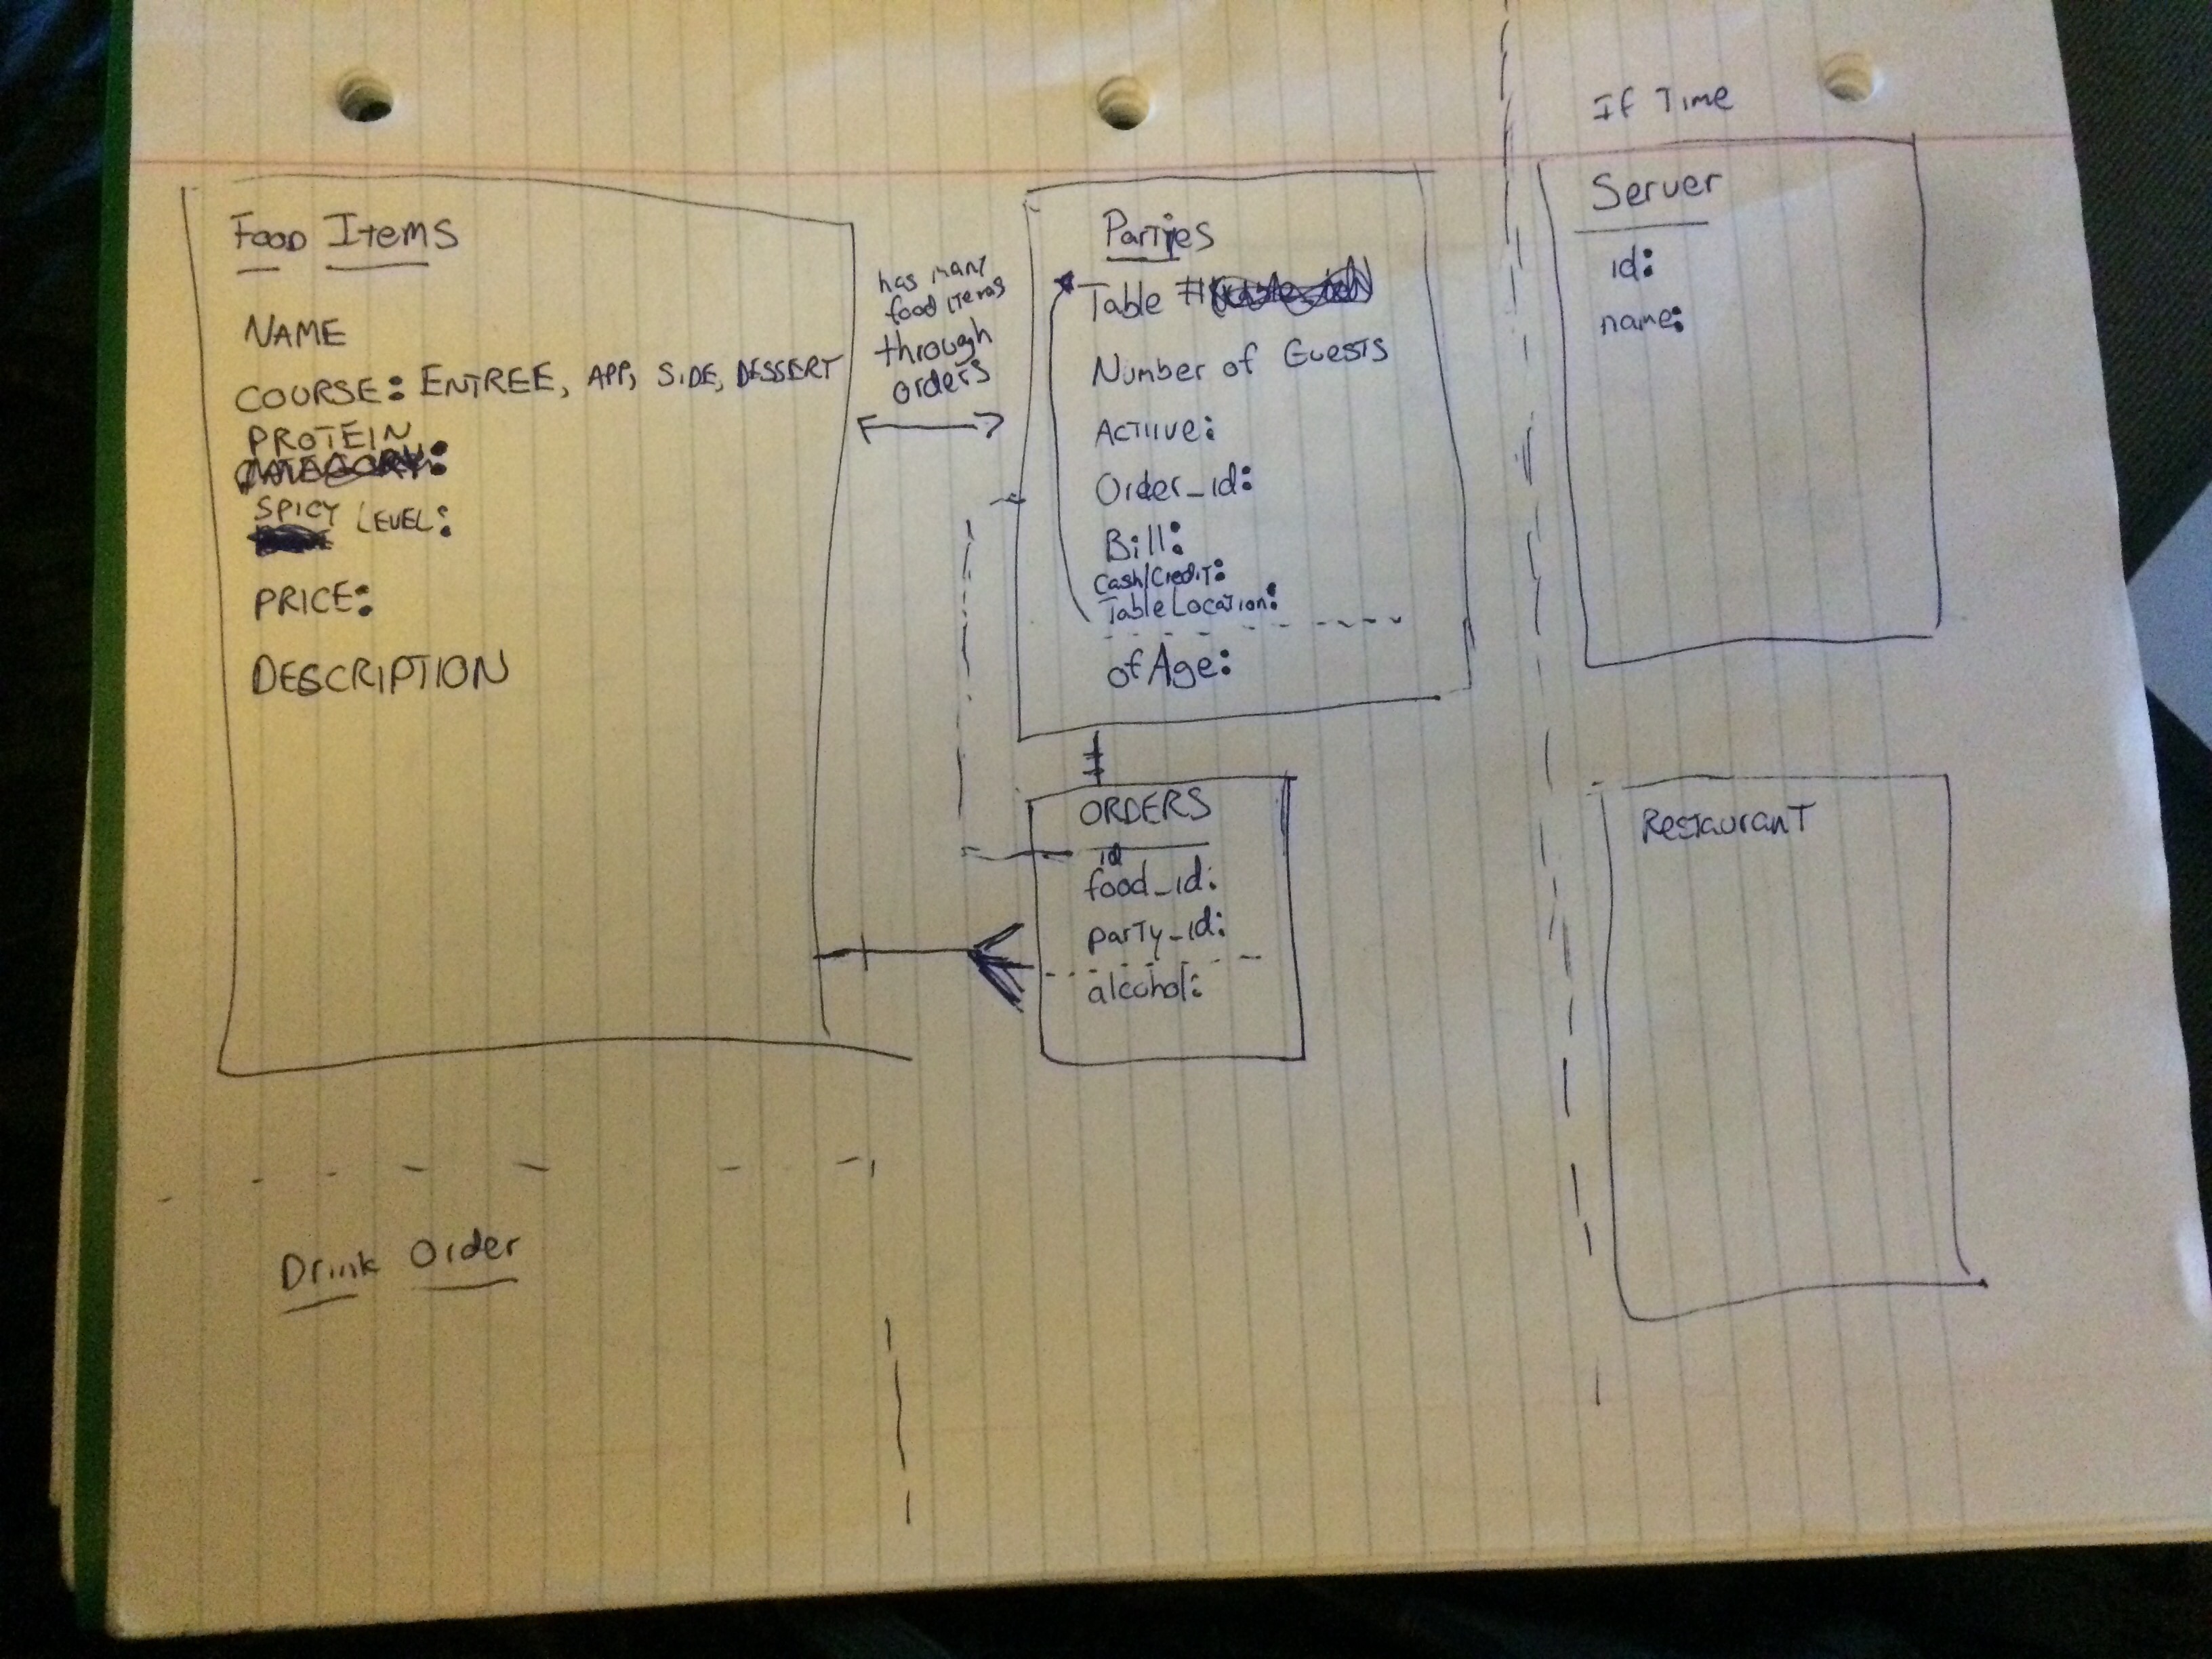 If Time
Food Items
NAME
COURSE: ENTREE, APP, SIDE, DESSERT
PROTEIN
CATEGORY:
SPICY LEVEL:
PRICE:
DESCRIPTION
has many
food items
through
orders
Parties
Table #
Number of Guests
Actiive:
Order_id:
Bill:
Cash/Credit:
Table Location:
of Age:
ORDERS
id
food_id:
party_id:
alcohol:
Server
id:
name:
Restaurant
Drink Order